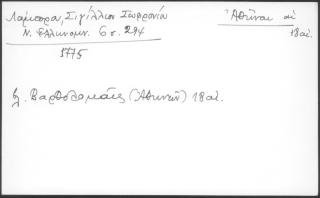 Λάμπρου, Σιγίλλιον Σωφρονίου
Ν. Ἑλληνομν. 6 σ. 294
1775
Ἀθῆναι αἱ
18 αἰ.
ἐ. Βαρθολομαῖος (Ἀθηνῶν) 18 αἰ.